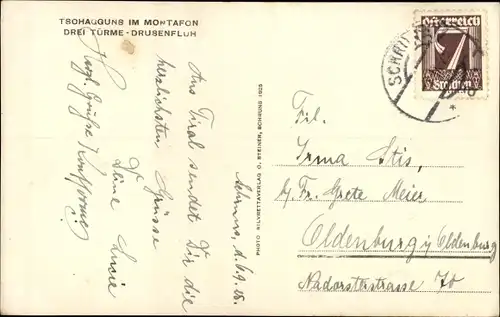 TSCHAGGUNS IM MONTAFON
DREI TÜRME - DRUSENFLUH
Aus Tirol sendet Dir die
herzlichsten Grüsse
Deine Lucie
Herzl. Grüße
PHOTO U. SILVRETTAVERLAG O. STEINER, SCHRUNS 1925
Österreich
7
Groschen
SCHRUNS
Frl.
Irma Stis,
b/ Fr. Grete Meier
Oldenburg i/ Oldenburg
Nadorsterstrasse 70